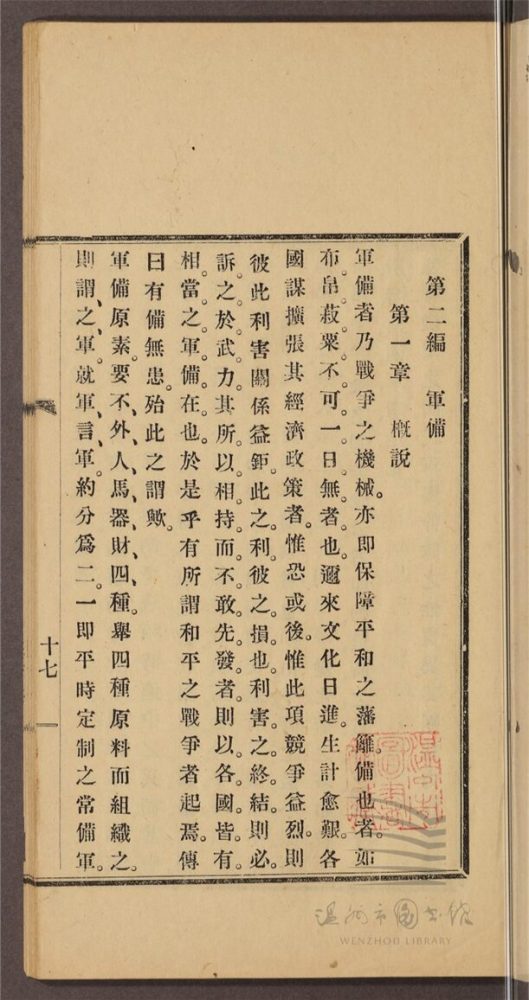 第二編　軍備
第一章　概說
軍備者乃戰爭之機械。亦即保障平和之藩籬。備也者。如
布帛。菽粟。不可。一日無者也。邇來文化日進。生計愈艱。各
國謀擴張其經濟政策者。惟恐或後。惟此項競爭益烈。則
彼此利害關係益鉅。此之利。彼之損也。利害之終結。則必
訴之於武力。其所以相持而不敢先發者。則以各國皆有
相當之軍備在也。於是乎有所謂和平之戰爭者起焉。傳
曰有備無患。殆此之謂歟。
軍備原素。要不外人、馬、器、財、四種。舉四種原料而組織之。
則謂之軍。就軍言軍。約分爲二。一即平時定制之常備軍。
十七
溫州市圖書館
WENZHOU LIBRARY